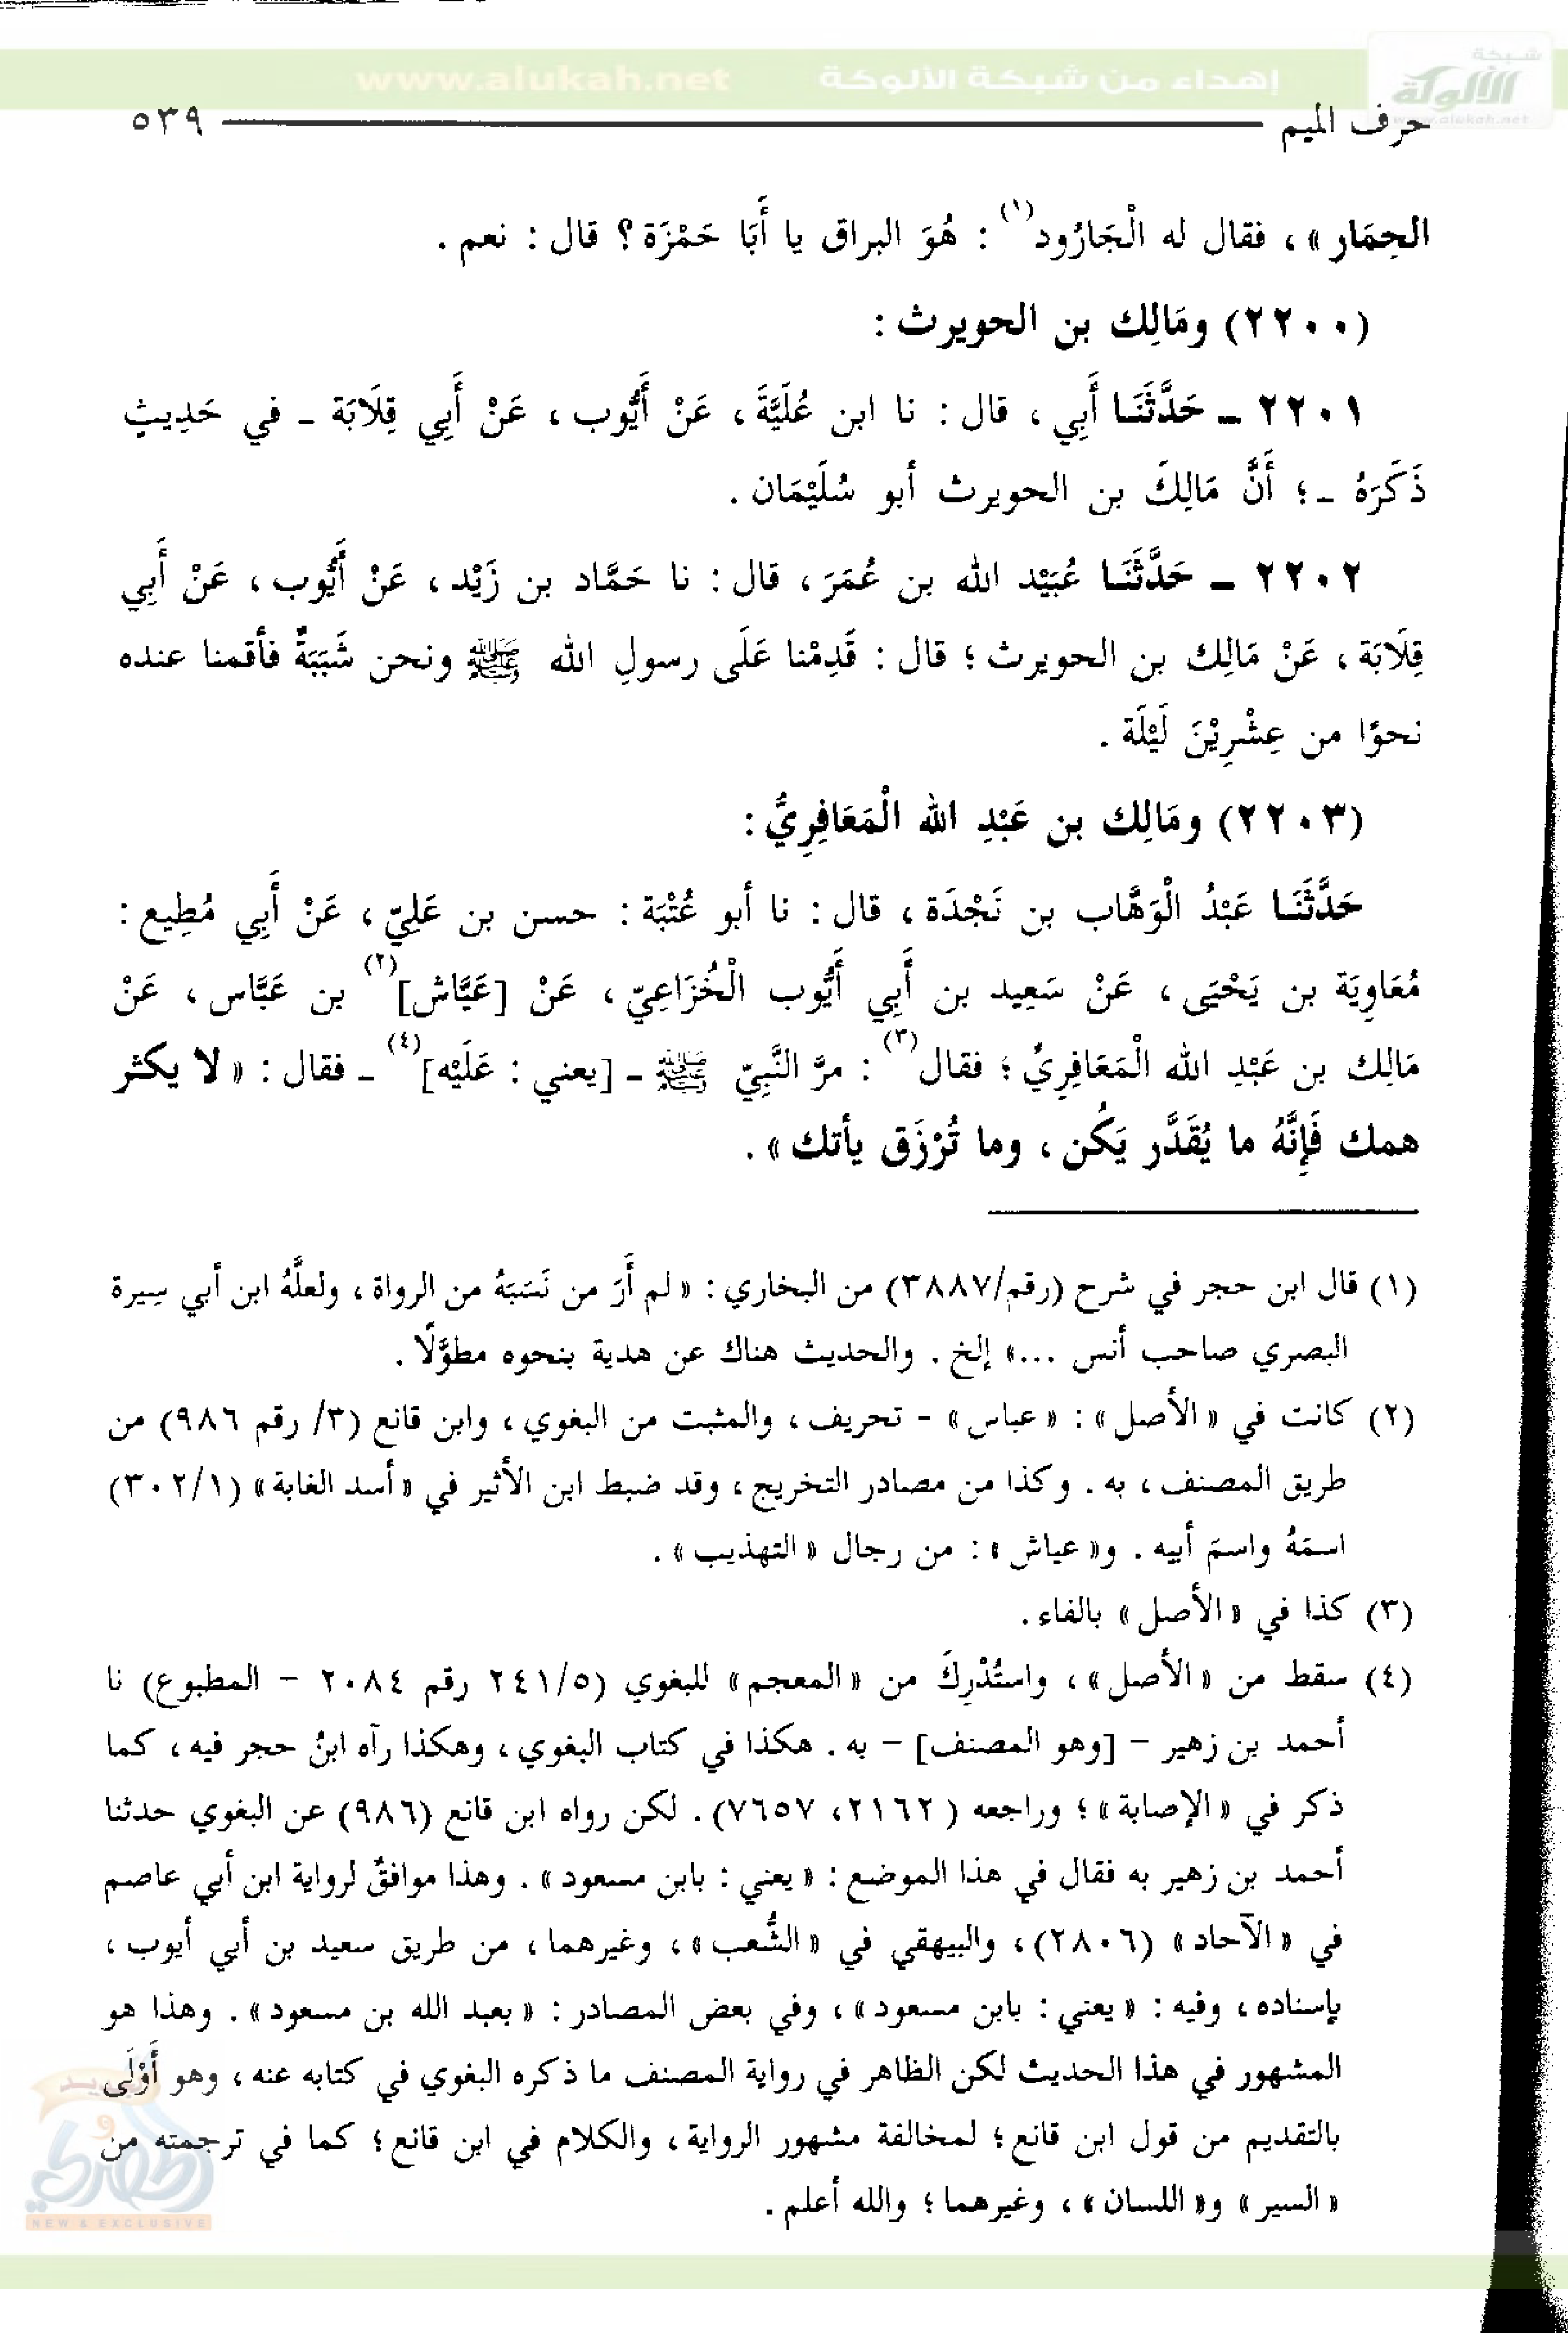 www.alukah.net إهداء من شبكة الألوكة
شبكة
الألوكة
www.alukah.net
حرف الميم ٥٣٩
الحِمَار » ، فقال له الْجَارُود(١) : هُوَ البراق يا أَبَا حَمْزَة ؟ قال : نعم .
(٢٢٠٠) ومَالِك بن الحويرث :
٢٢٠١ ـ حَدَّثَنَا أَبِي ، قال : نا ابن عُلَيَّةَ ، عَنْ أَيُّوب ، عَنْ أَبِي قِلَابَة ـ في حَدِيثٍ
ذَكَرَهُ ـ ؛ أَنَّ مَالِكَ بن الحويرث أبو سُلَيْمَان .
٢٢٠٢ ـ حَدَّثَنَا عُبَيْد الله بن عُمَرَ ، قال : نا حَمَّاد بن زَيْد ، عَنْ أَيُّوب ، عَنْ أَبِي
قِلَابَة ، عَنْ مَالِك بن الحويرث ؛ قال : قَدِمْنا عَلَى رسولِ الله ﷺ ونحن شَبَبَةٌ فأقمنا عنده
نحوًا من عِشْرِيْنَ لَيْلَة .
(٢٢٠٣) ومَالِك بن عَبْدِ الله الْمَعَافِرِيُّ :
حَدَّثَنَا عَبْدُ الْوَهَّاب بن نَجْدَة ، قال : نا أبو عُتْبَة : حسن بن عَلِيّ ، عَنْ أَبِي مُطِيع :
مُعَاوِيَة بن يَحْيَى ، عَنْ سَعِيد بن أَبِي أَيُّوب الْخُزَاعِيّ ، عَنْ [عَيَّاش](٢) بن عَبَّاس ، عَنْ
مَالِك بن عَبْدِ الله الْمَعَافِرِيُّ ؛ فقال(٣) : مرَّ النَّبِيّ ﷺ ـ [يعني : عَلَيْه](٤) ـ فقال : « لا يكثر
همك فَإِنَّهُ ما يُقَدَّر يَكُن ، وما تُرْزَق يأتك » .
(١) قال ابن حجر في شرح (رقم/٣٨٨٧) من البخاري : « لم أَرَ من نَسَبَهُ من الرواة ، ولعلَّهُ ابن أبي سِيرة
البصري صاحب أنس ...» إلخ . والحديث هناك عن هدية بنحوه مطوَّلًا .
(٢) كانت في « الأصل » : « عباس » - تحريف ، والمثبت من البغوي ، وابن قانع (٣/ رقم ٩٨٦) من
طريق المصنف ، به . وكذا من مصادر التخريج ، وقد ضبط ابن الأثير في « أسد الغابة » (٣٠٢/١)
اسمَهُ واسمَ أبيه . و« عياش » : من رجال « التهذيب » .
(٣) كذا في « الأصل » بالفاء .
(٤) سقط من « الأصل » ، واستُدْرِكَ من « المعجم » للبغوي (٢٤١/٥ رقم ٢٠٨٤ - المطبوع) نا
أحمد بن زهير - [وهو المصنف] - به . هكذا في كتاب البغوي ، وهكذا رآه ابنُ حجر فيه ، كما
ذكر في « الإصابة » ؛ وراجعه (٢١٦٢، ٧٦٥٧) . لكن رواه ابن قانع (٩٨٦) عن البغوي حدثنا
أحمد بن زهير به فقال في هذا الموضع : « يعني : بابن مسعود » . وهذا موافقٌ لرواية ابن أبي عاصم
في « الآحاد » (٢٨٠٦) ، والبيهقي في « الشُّعب » ، وغيرهما ، من طريق سعيد بن أبي أيوب ،
بإسناده ، وفيه : « يعني : بابن مسعود » ، وفي بعض المصادر : « بعبد الله بن مسعود » . وهذا هو
المشهور في هذا الحديث لكن الظاهر في رواية المصنف ما ذكره البغوي في كتابه عنه ، وهو أَوْلَى
بالتقديم من قول ابن قانع ؛ لمخالفة مشهور الرواية ، والكلام في ابن قانع ؛ كما في ترجمته من
« السير » و« اللسان » ، وغيرهما ؛ والله أعلم .
NEW & EXCLUSIVE